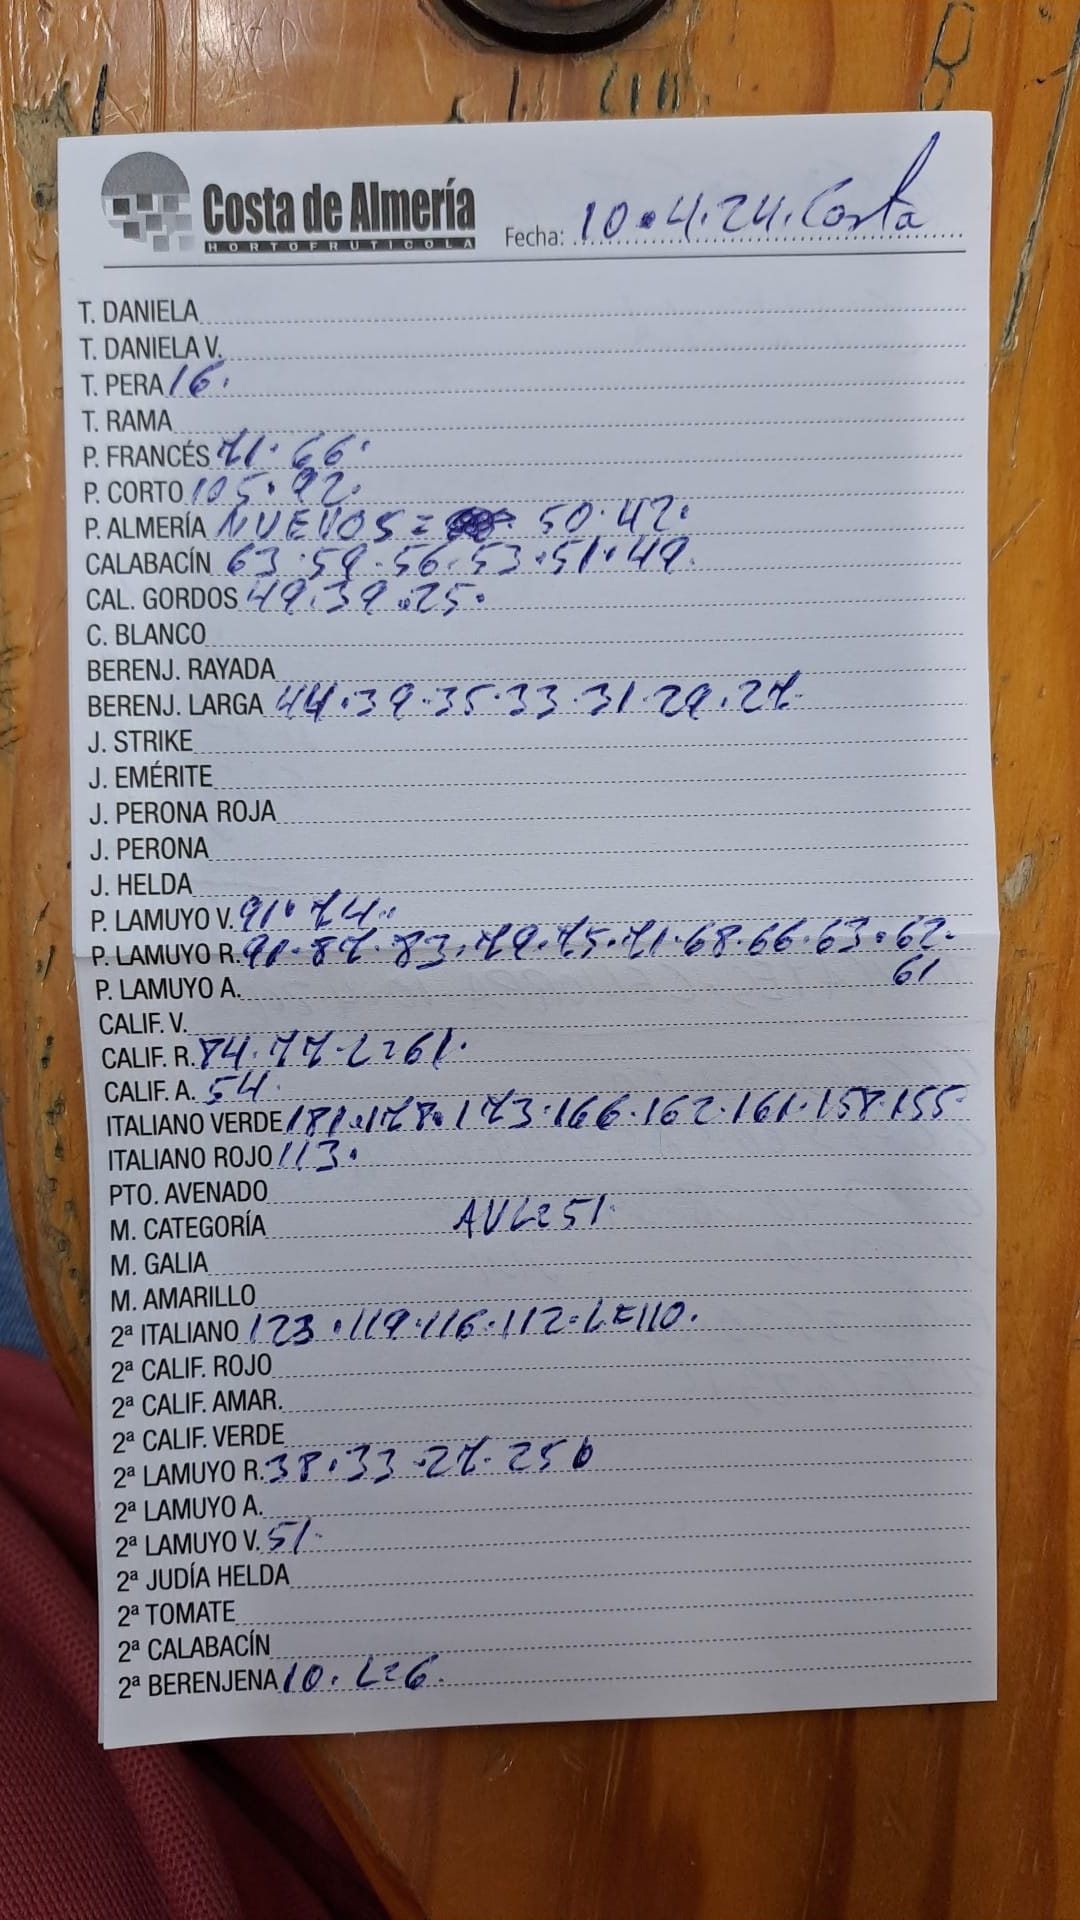 Costa de Almería
HORTOFRUTICOLA
Fecha: 10.4.24. Costa
T. DANIELA
T. DANIELA V.
T. PERA 16.
T. RAMA
P. FRANCÉS 71. 66.
P. CORTO 105. 92.
P. ALMERÍA NUEVOS = 50. 42.
CALABACÍN 63. 59. 56. 53. 51. 49.
CAL. GORDOS 49. 39. 25.
C. BLANCO
BERENJ. RAYADA
BERENJ. LARGA 44. 39. 35. 33. 31. 29. 27.
J. STRIKE
J. EMÉRITE
J. PERONA ROJA
J. PERONA
J. HELDA
P. LAMUYO V. 91. 74.
P. LAMUYO R. 91. 87. 83. 79. 75. 71. 68. 66. 63. 62.
61
P. LAMUYO A.
CALIF. V.
CALIF. R. 84. 77. L=61.
CALIF. A. 54.
ITALIANO VERDE 181. 178. 173. 166. 162. 161. 158. 155
ITALIANO ROJO 113.
PTO. AVENADO
M. CATEGORÍA AVL=51.
M. GALIA
M. AMARILLO
2ª ITALIANO 123. 119. 116. 112. L=110.
2ª CALIF. ROJO
2ª CALIF. AMAR.
2ª CALIF. VERDE
2ª LAMUYO R. 38. 33. 27. 25.
2ª LAMUYO A.
2ª LAMUYO V. 51.
2ª JUDÍA HELDA
2ª TOMATE
2ª CALABACÍN
2ª BERENJENA 10. L=6.